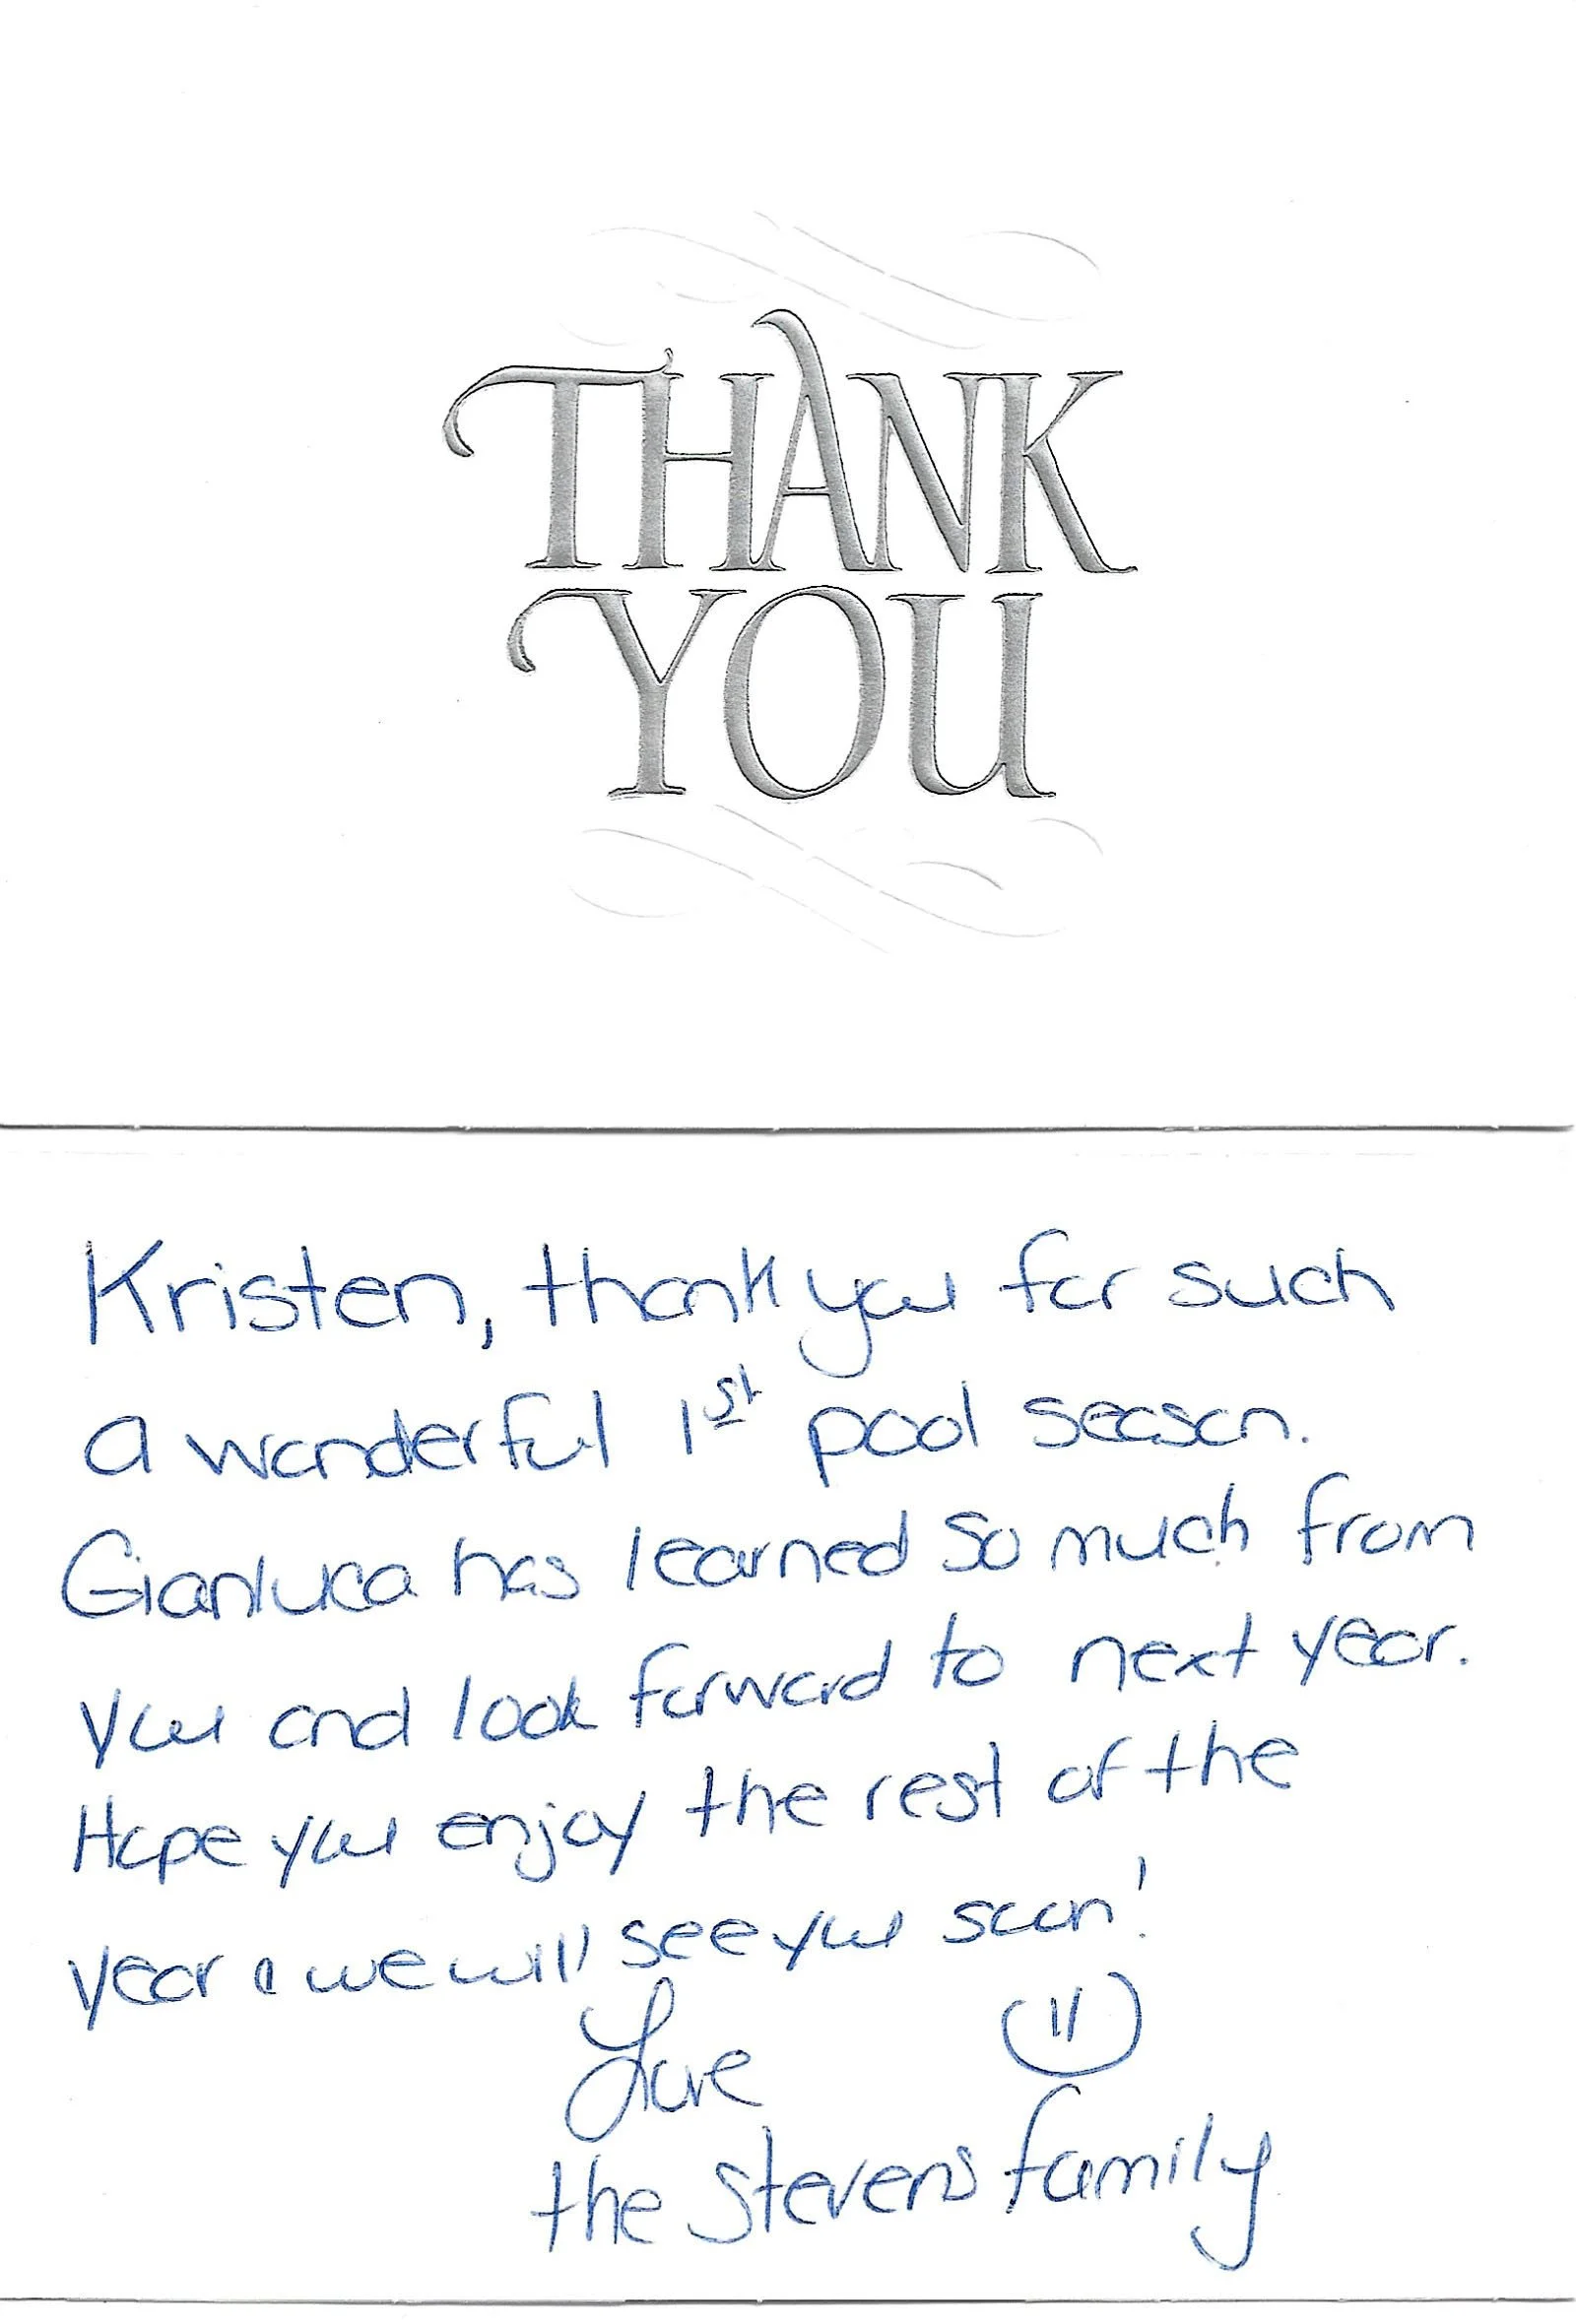 THANK
YOU
Kristen, thank you for such
a wonderful 1st pool season.
Gianluca has learned so much from
you and look forward to next year.
Hope you enjoy the rest of the
year & we will see you soon!
Love
the Stevens family